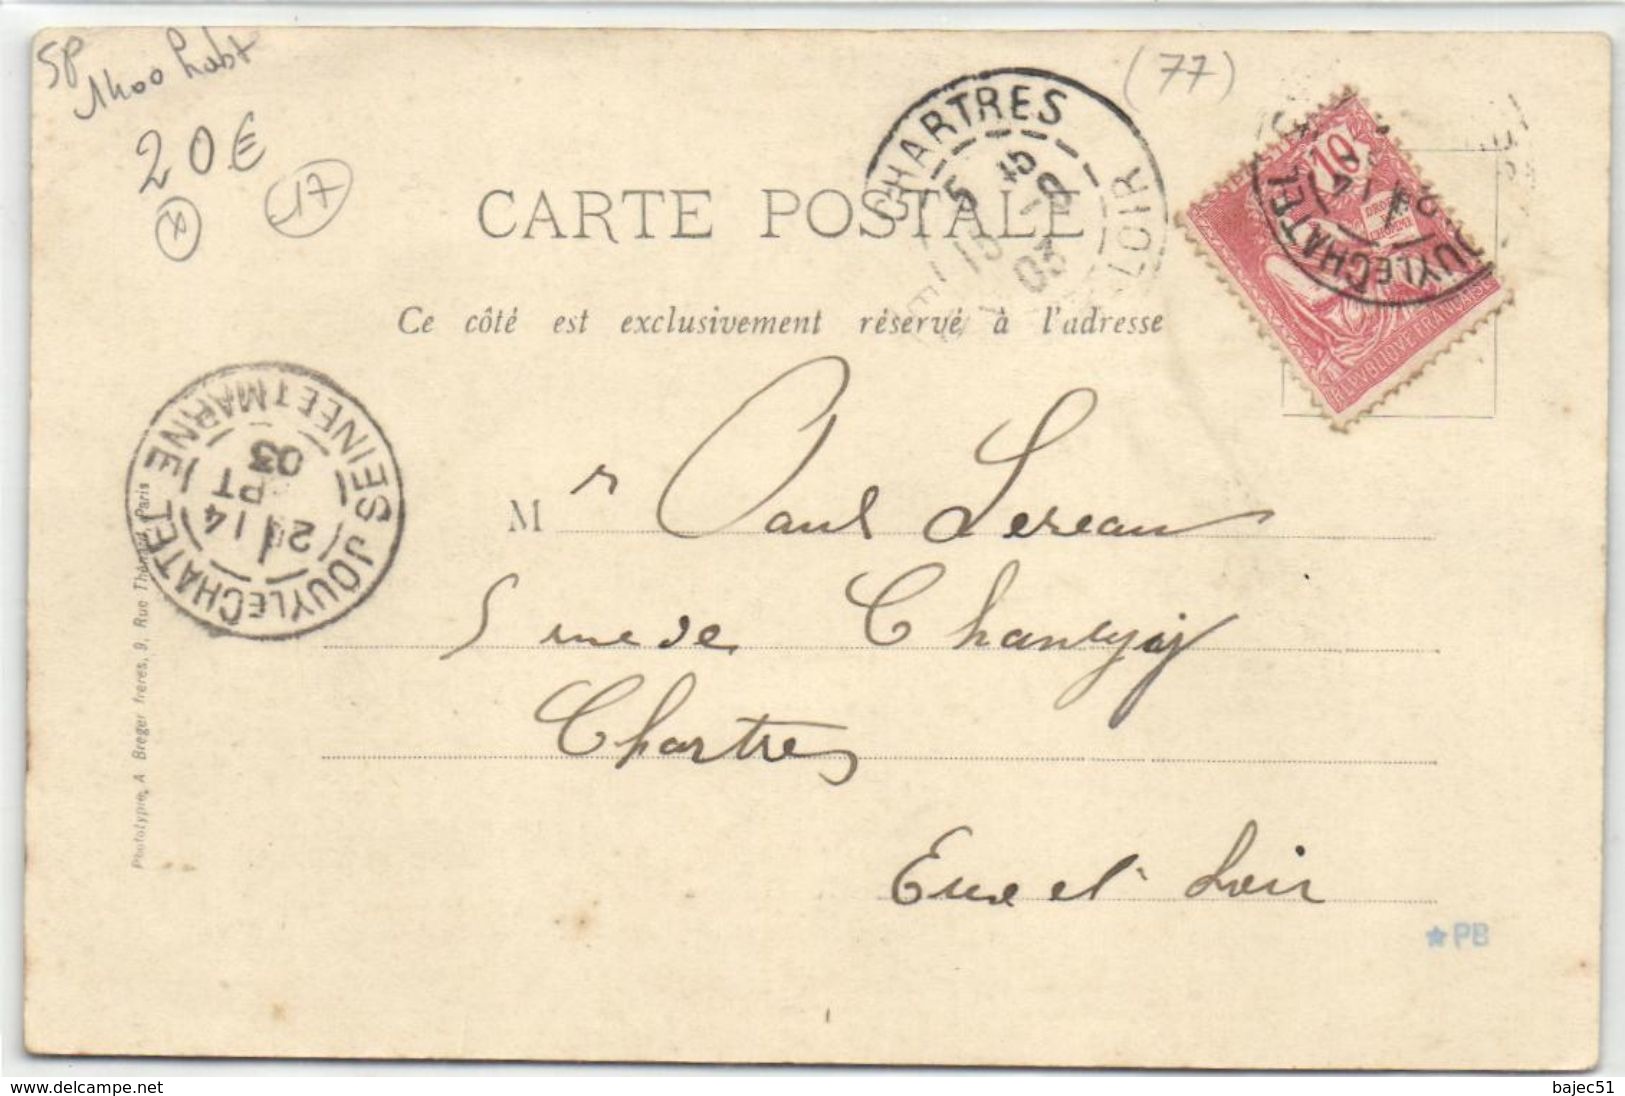 SP
1400 habt
20€
17
(77)
CHARTRES
LOIR
5 15
03
10
JOUY LE CHATEL
REPUBLIQUE FRANÇAISE
CARTE POSTALE
Ce côté est exclusivement réservé à l'adresse
JOUY LE CHATEL
SEINE ET MARNE
14
PT
03
Phototypie, A Breger frères, 9, Rue Thénard Paris
Mr Paul Lereau
5 rue de Chanzy
Chartres
Eure et Loir
★PB
www.delcampe.net
bajec51